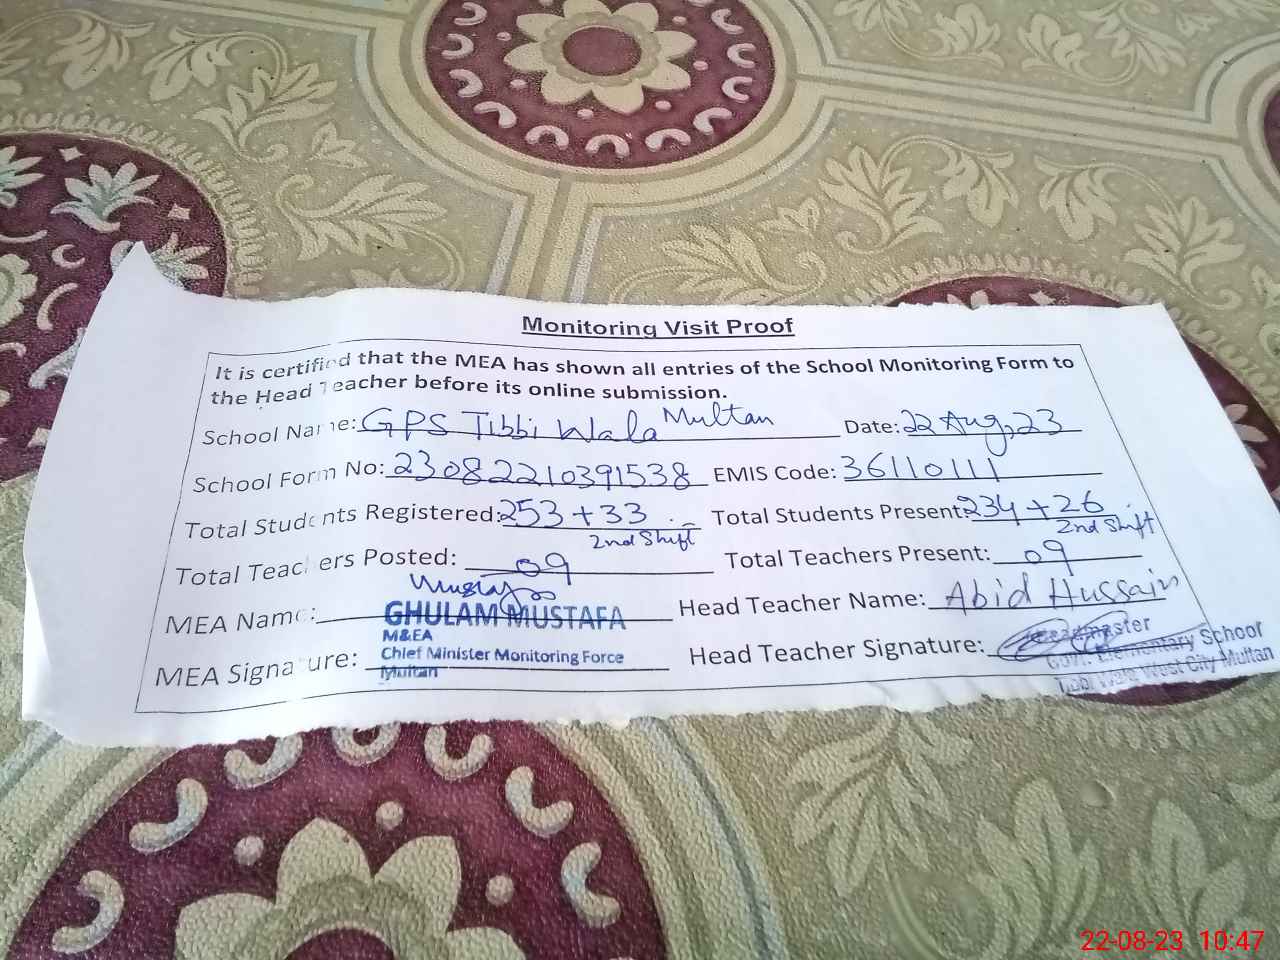 Monitoring Visit Proof
It is certified that the MEA has shown all entries of the School Monitoring Form to
the Head Teacher before its online submission.
School Name: GPS Tibbi Wala Multan Date: 22 Aug, 23
School Form No: 23082210391538 EMIS Code: 36110111
Total Students Registered: 253 + 33 Total Students Present: 234 + 26
2nd Shift 2nd Shift
Total Teachers Posted: 09 Total Teachers Present: 09
Mustafa
MEA Name: GHULAM MUSTAFA Head Teacher Name: Abid Hussain
M&EA
Chief Minister Monitoring Force
Multan
MEA Signature: Head Teacher Signature:
Headmaster
Govt. Elementary School
Tibbi Wala West City Multan
22-08-23 10:47